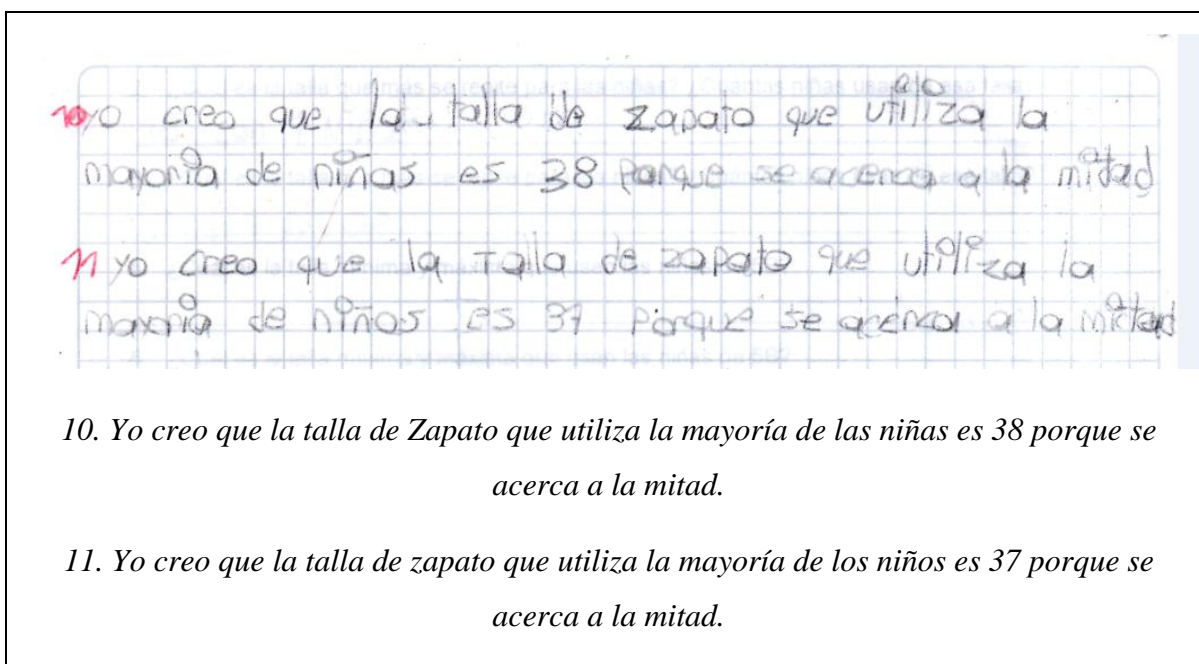 10 yo creo que la talla de zapato que utiliza la
mayoria de niñas es 38 porque se acerca a la mitad
11 yo creo que la Talla de zapato que utiliza la
mayoria de niños es 37 porque se acerca a la mitad
10. Yo creo que la talla de Zapato que utiliza la mayoría de las niñas es 38 porque se
acerca a la mitad.
11. Yo creo que la talla de zapato que utiliza la mayoría de los niños es 37 porque se
acerca a la mitad.